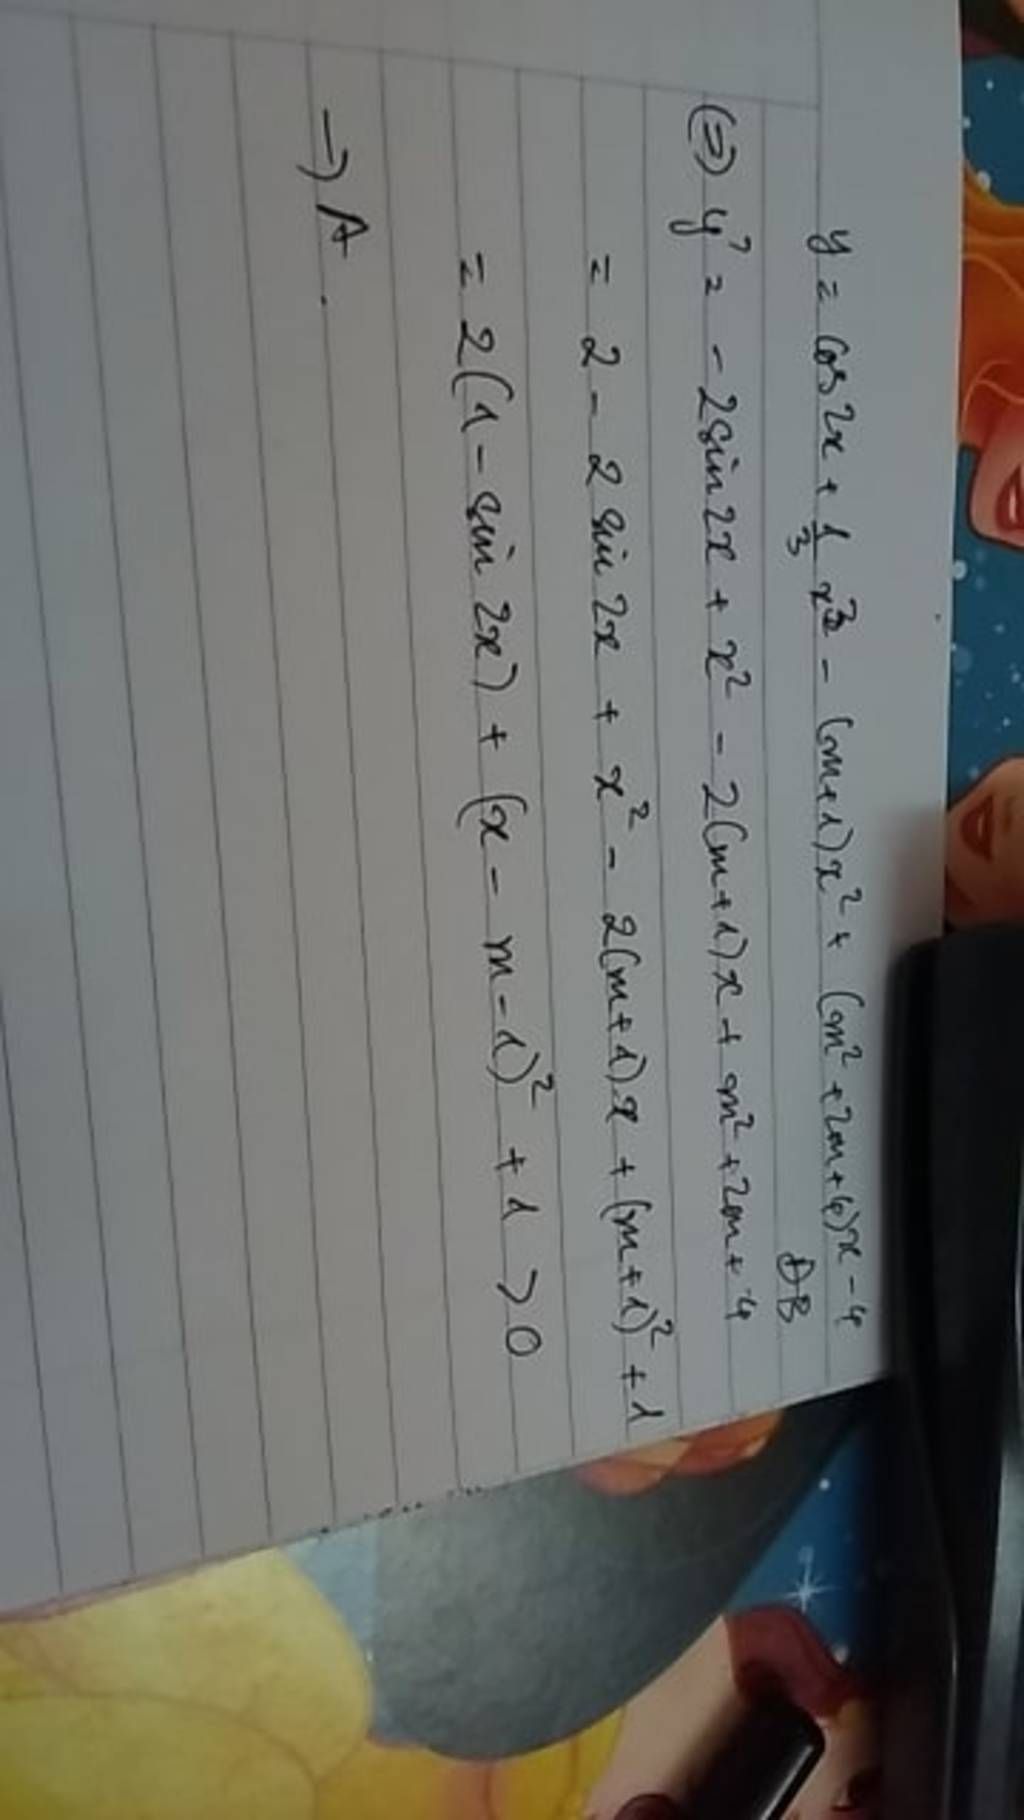 y = cos 2x + 1/3 x³ - (m+1)x² + (m² + 2m + 4)x - 4
ĐB
(=) y' = - 2sin 2x + x² - 2(m+1)x + m² + 2m + 4
= 2 - 2 sin 2x + x² - 2(m+1)x + (m+1)² + 1
= 2(1 - sin 2x) + (x - m - 1)² + 1 > 0
→ A.